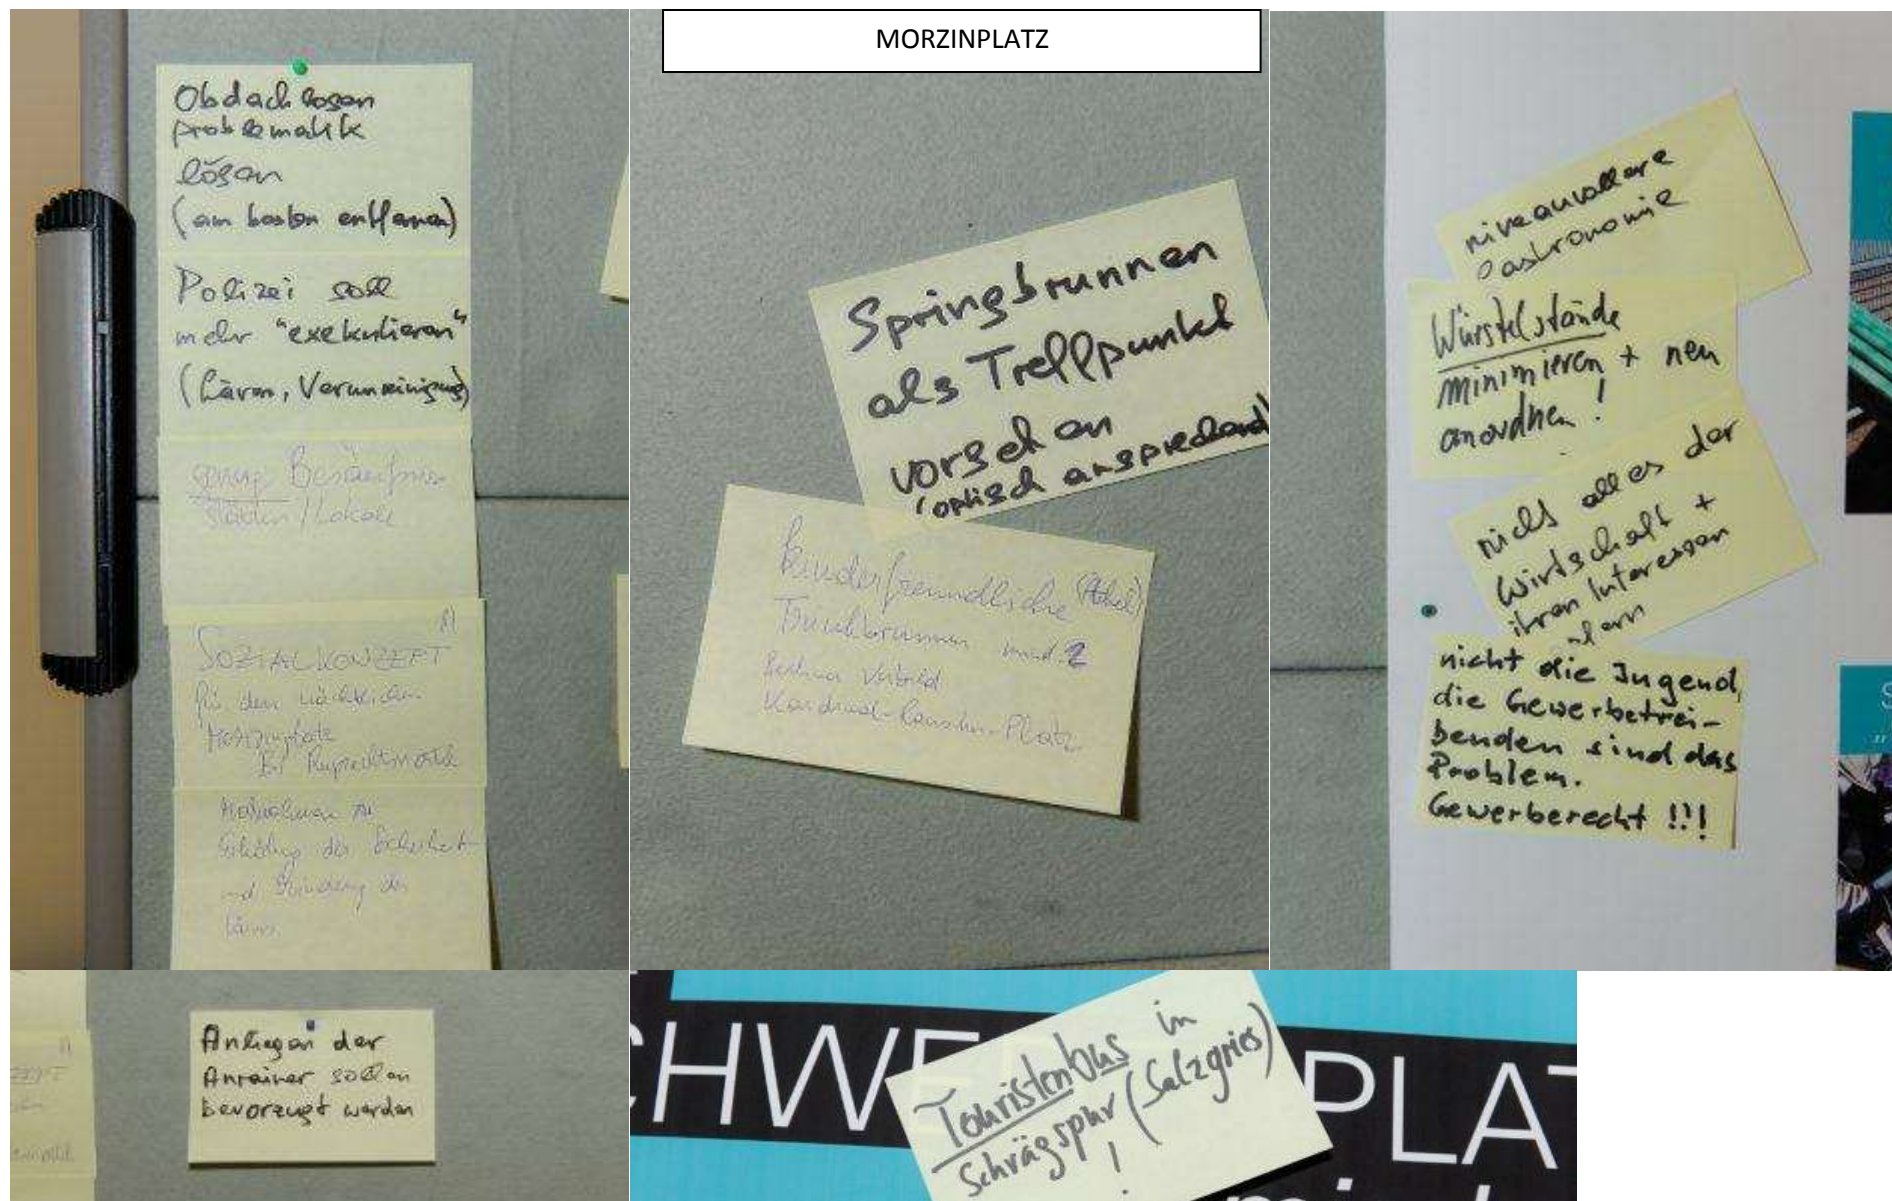 MORZINPLATZ
Obdachlosen
problematik
lösen
(am besten entfernen)
Polizei soll
mehr "exekutieren"
(Lärm, Verunreinigung)
genug Besäufnis-
stätten / Lokale
A)
SOZIALKONZEPT
für den nächtlichen
Morzinplatz
Bs Ruprechtsviertel
Massnahmen zu
Erhöhung der Sicherheit
und Minderung des
Lärms
Springbrunnen
als Treffpunkt
vorsehen
(optisch ansprechend)
kinderfreundliche
Trinkbrunnen mind. 2
Berliner Vorbild
Kardinal-Rauscher-Platz
niveauvollere
Gastronomie
Würstelstände
minimieren + neu
anordnen!
nicht alles der
Wirtschaft +
ihren Interessen
nicht die Jugend,
die Gewerbetrei-
benden sind das
Problem.
Gewerberecht !!!
Anliegen der
Anrainer sollen
bevorzugt werden
Touristenbus in
Schrägspur (Salzgries)
!
CHWE
PLAT